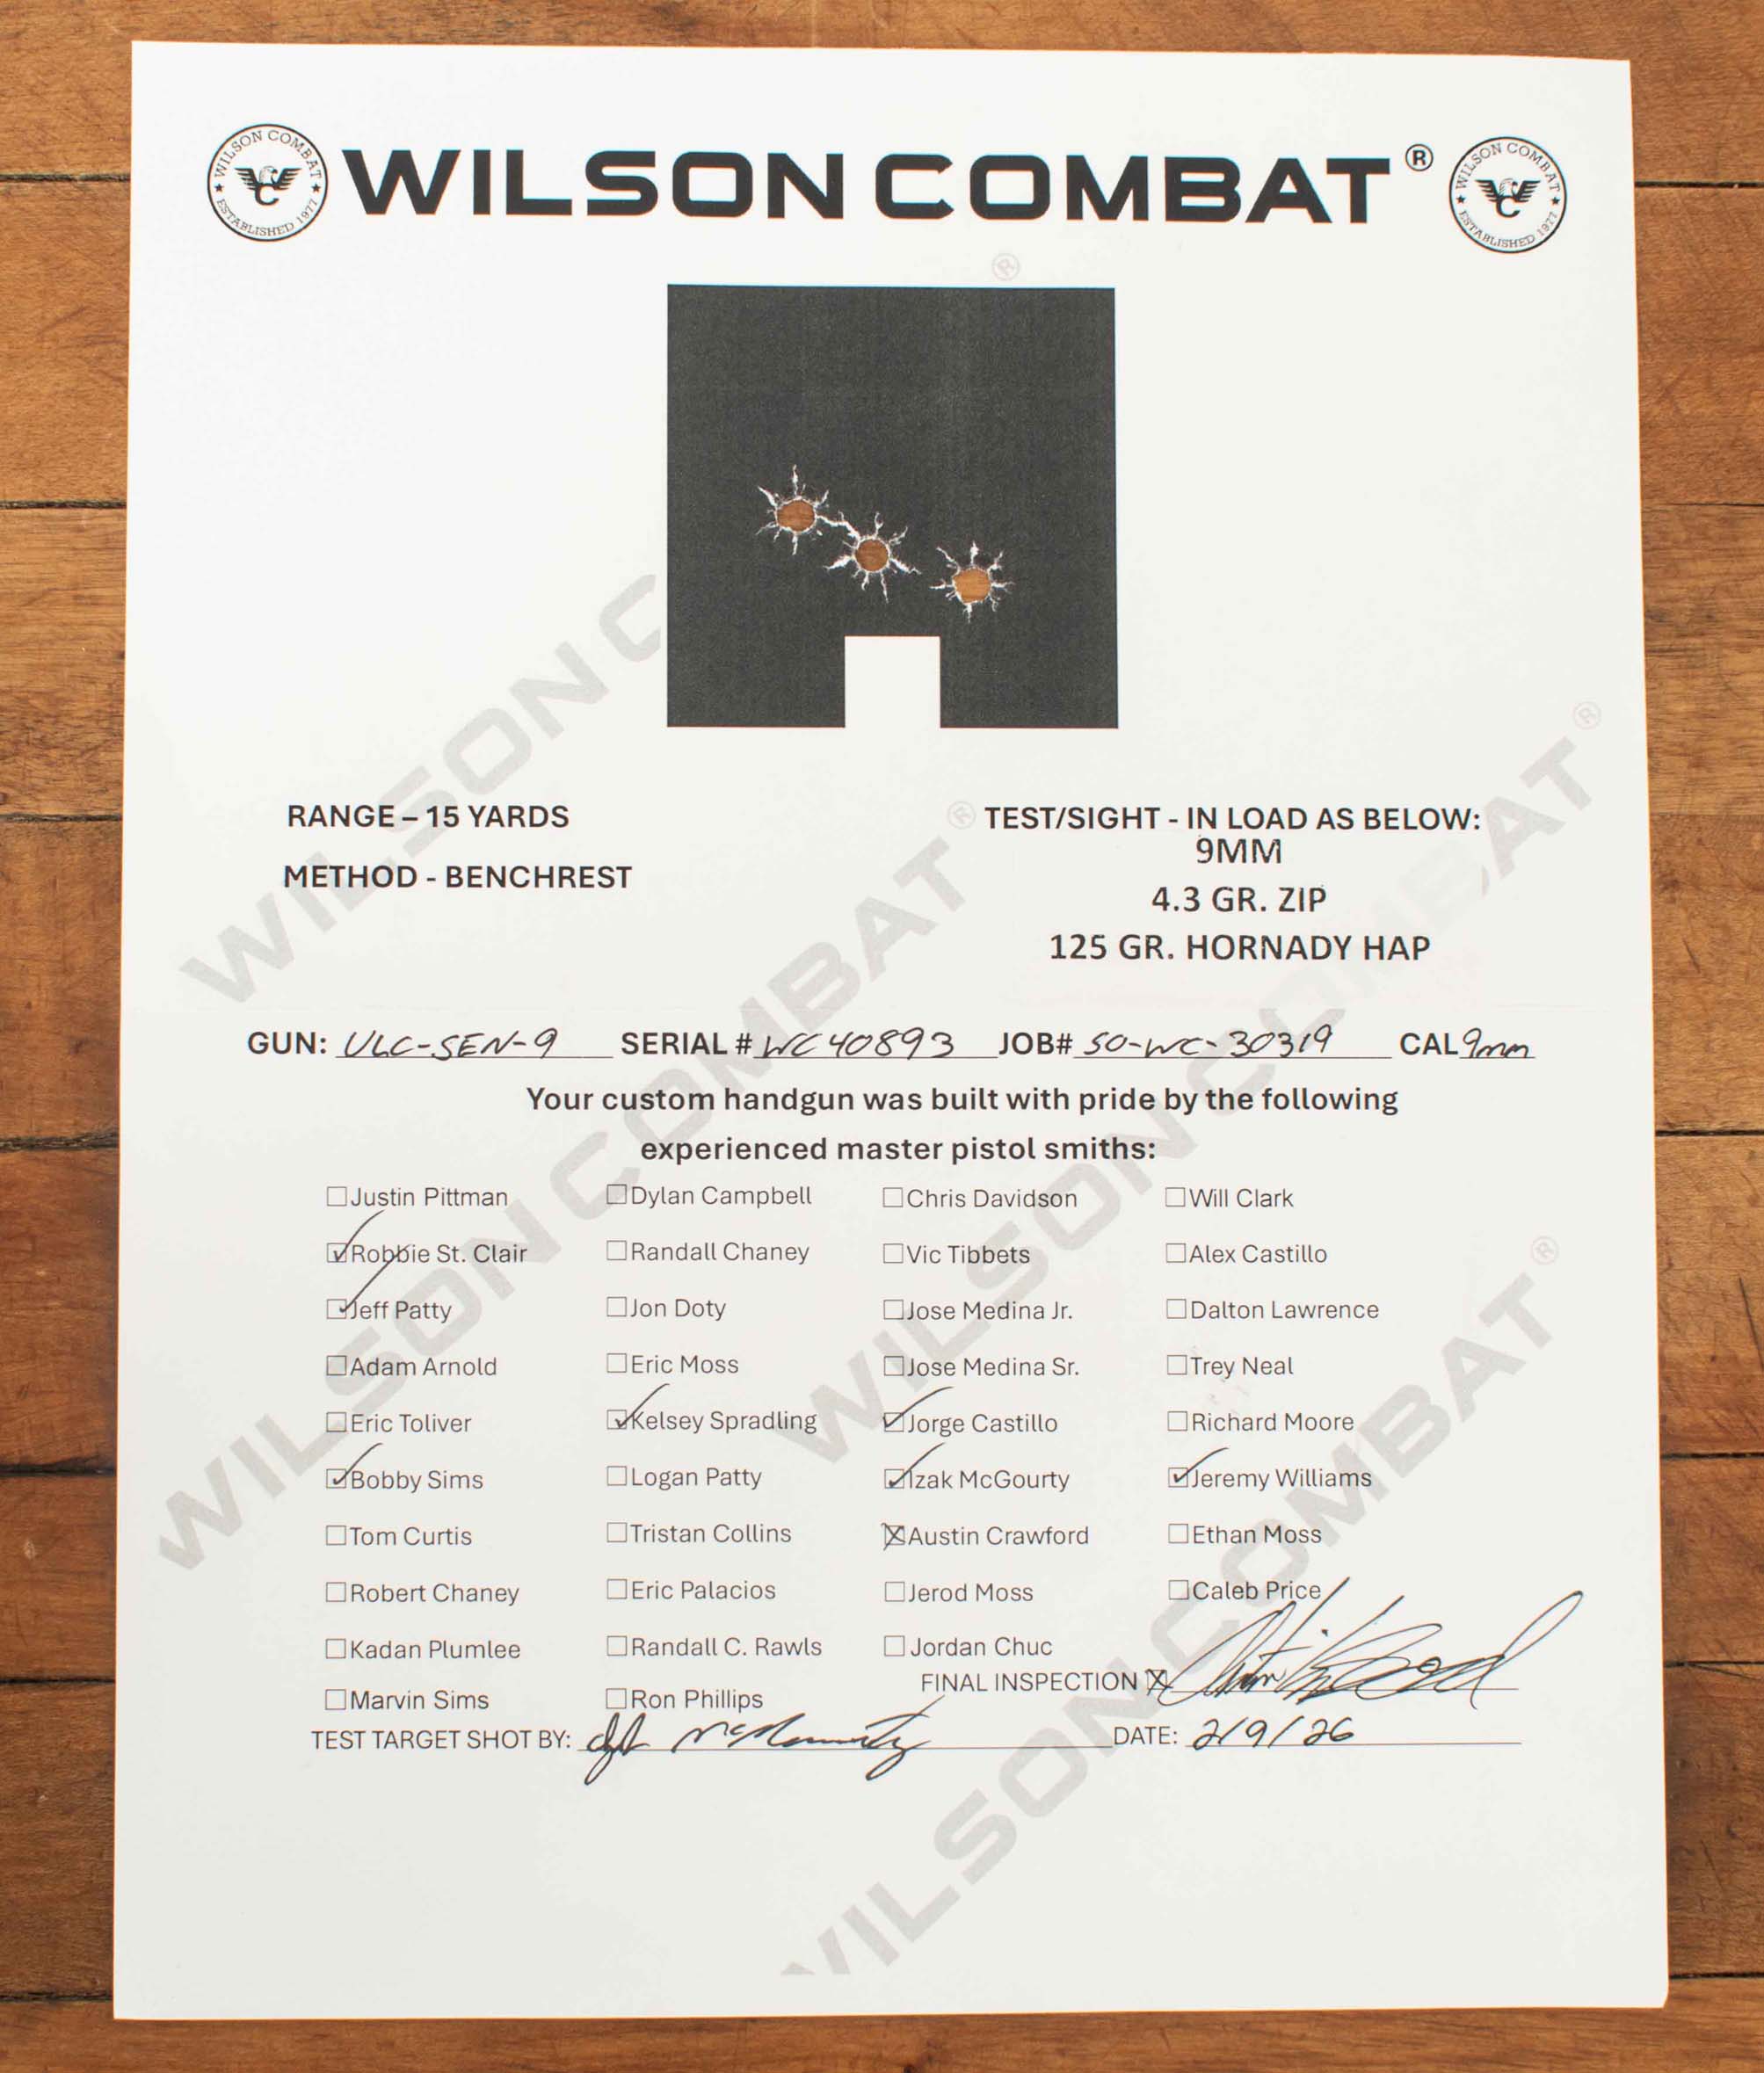 WILSON COMBAT ESTABLISHED 1977
WILSON COMBAT®
WILSON COMBAT ESTABLISHED 1977
RANGE – 15 YARDS
METHOD - BENCHREST
TEST/SIGHT - IN LOAD AS BELOW:
9MM
4.3 GR. ZIP
125 GR. HORNADY HAP
GUN: ULC-SEN-9 SERIAL # WC40893 JOB# SO-WC-30319 CAL 9mm
Your custom handgun was built with pride by the following
experienced master pistol smiths:
☐Justin Pittman ☐Dylan Campbell ☐Chris Davidson ☐Will Clark
☑Robbie St. Clair ☐Randall Chaney ☐Vic Tibbets ☐Alex Castillo
☑Jeff Patty ☐Jon Doty ☐Jose Medina Jr. ☐Dalton Lawrence
☐Adam Arnold ☐Eric Moss ☐Jose Medina Sr. ☐Trey Neal
☐Eric Toliver ☑Kelsey Spradling ☑Jorge Castillo ☐Richard Moore
☑Bobby Sims ☐Logan Patty ☑Izak McGourty ☑Jeremy Williams
☐Tom Curtis ☐Tristan Collins ☒Austin Crawford ☐Ethan Moss
☐Robert Chaney ☐Eric Palacios ☐Jerod Moss ☐Caleb Price
☐Kadan Plumlee ☐Randall C. Rawls ☐Jordan Chuc
FINAL INSPECTION X
☐Marvin Sims ☐Ron Phillips
TEST TARGET SHOT BY: DATE: 2/9/26
WILSON C
WILSON COMBAT®
WILSON COMBAT®
WILSON COMBAT®